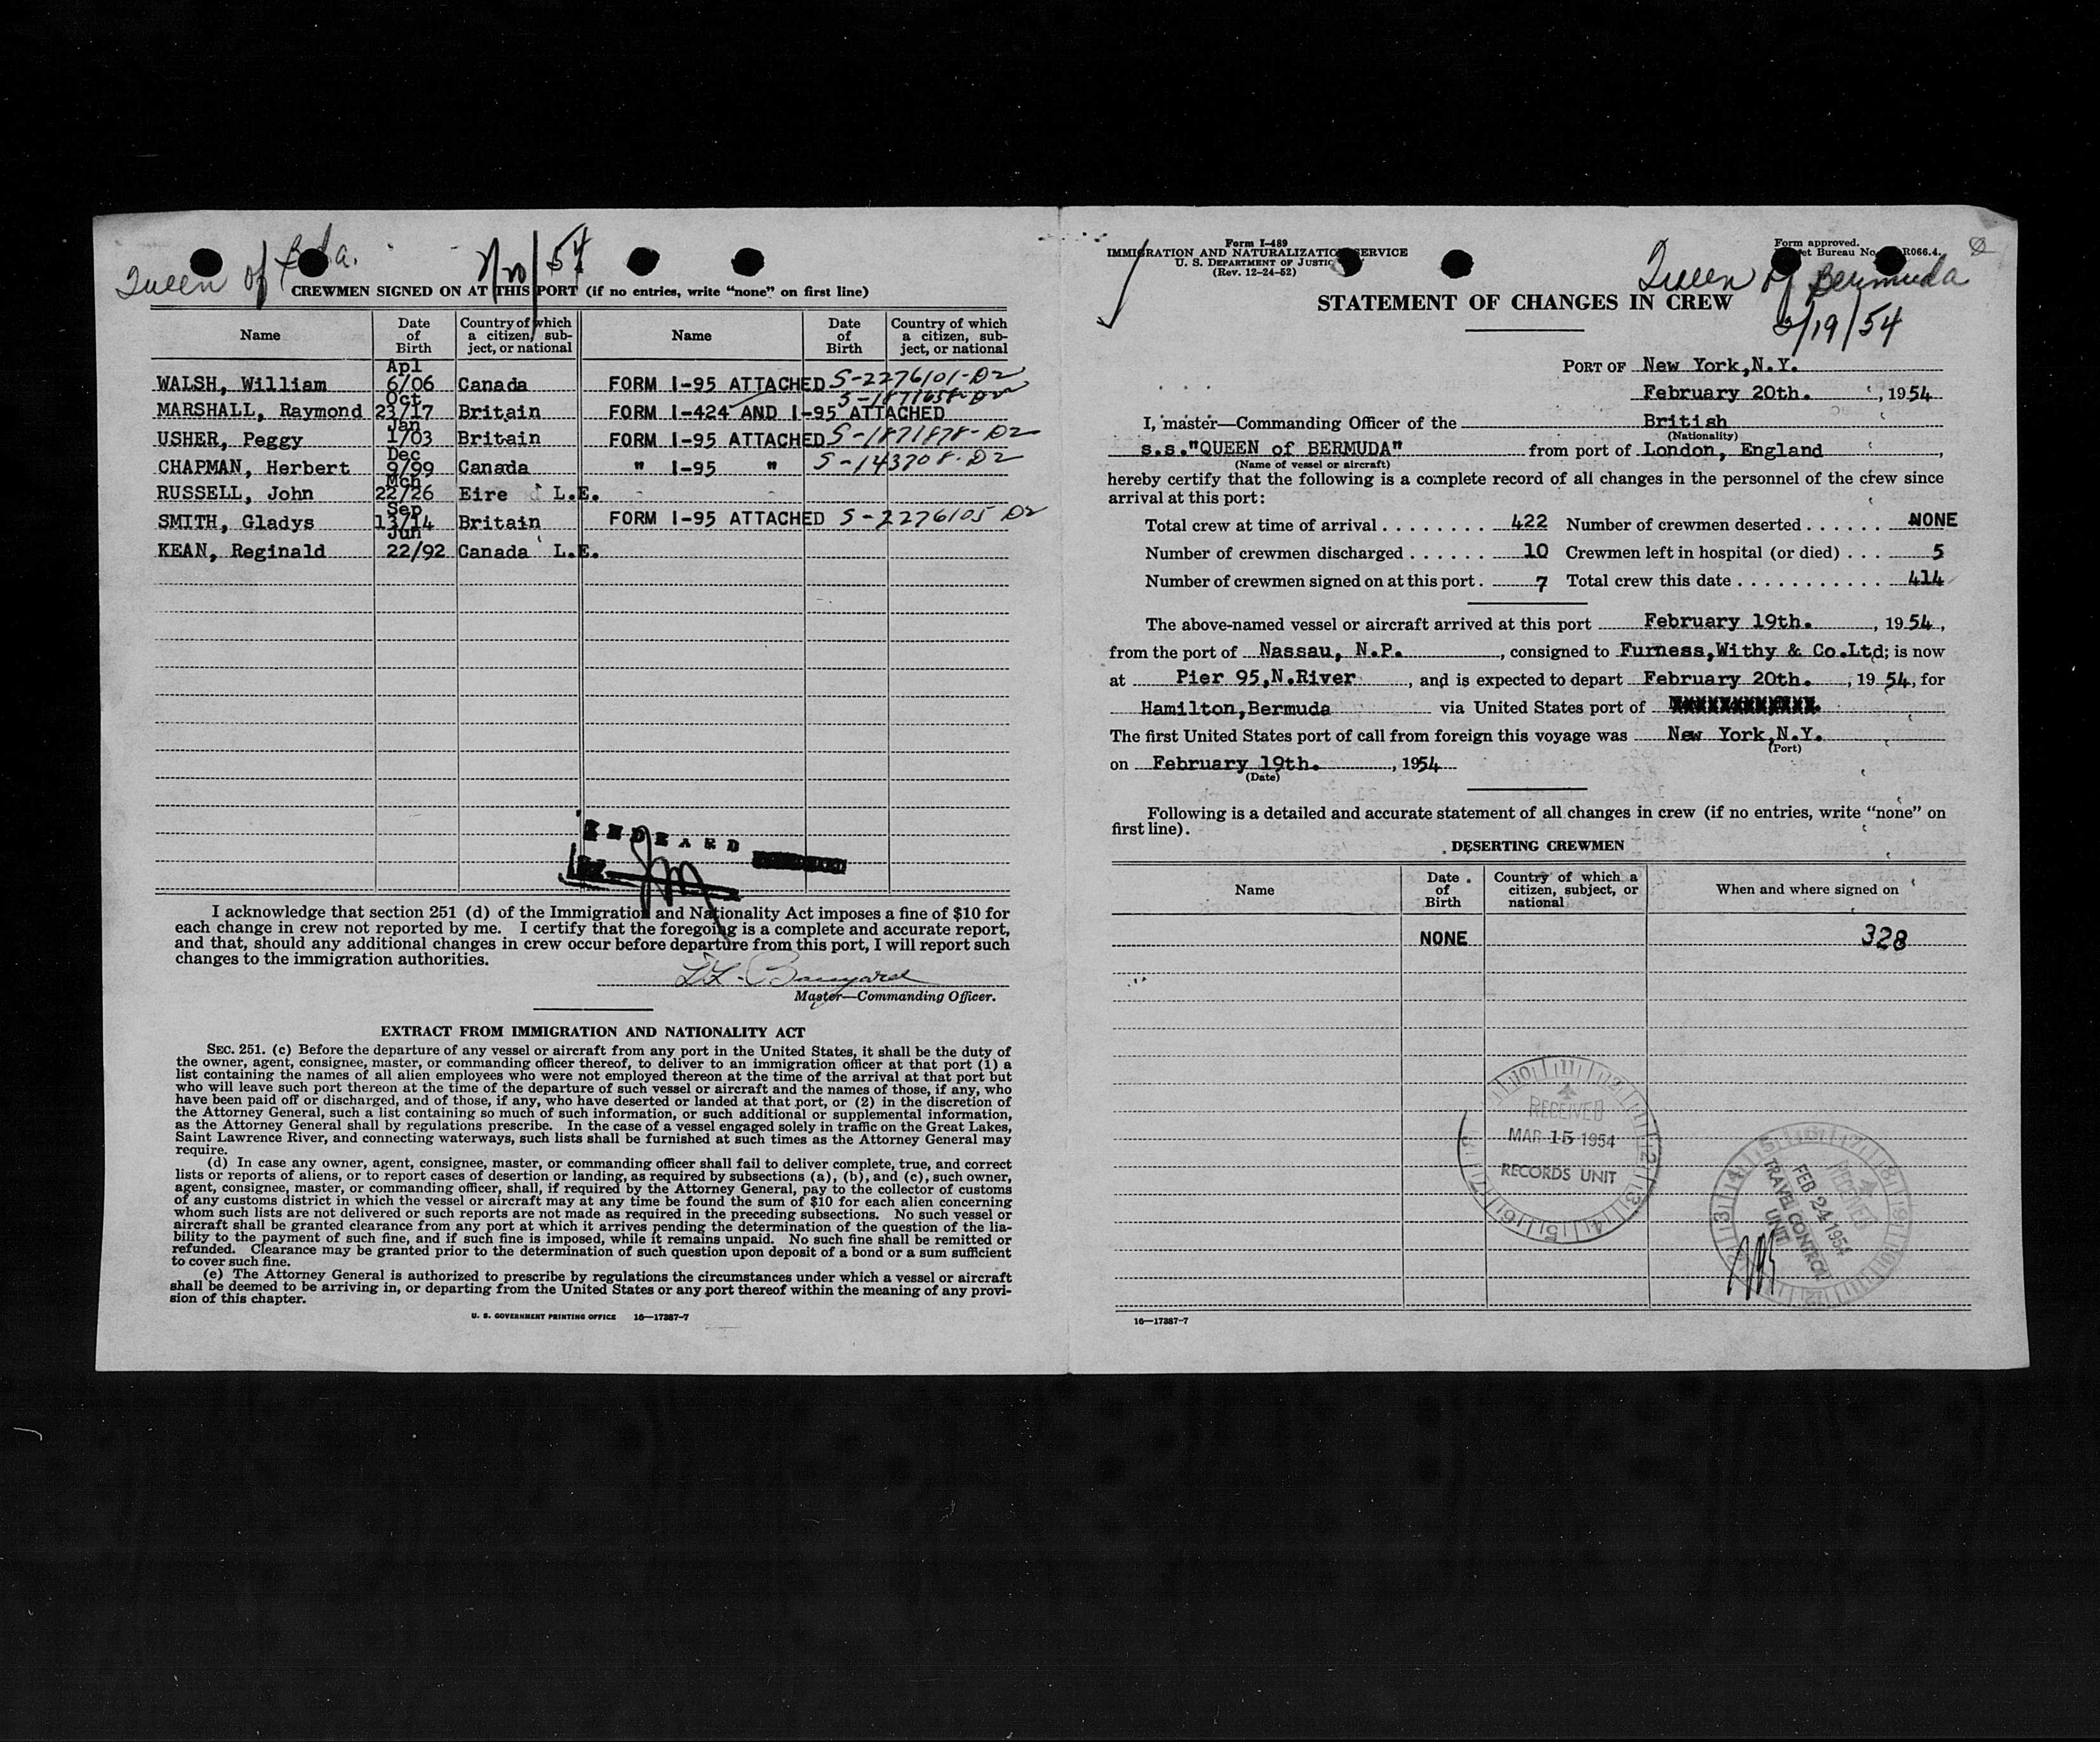 Queen of Bda.
54
CREWMEN SIGNED ON AT THIS PORT (if no entries, write "none" on first line)
Name Date of Birth Country of which a citizen, subject, or national Name Date of Birth Country of which a citizen, subject, or national
WALSH, William Apl 6/06 Canada FORM I-95 ATTACHED S-2276101-D2
MARSHALL, Raymond Oct 23/17 Britain FORM I-424 AND I-95 ATTACHED S-1871658-D2
USHER, Peggy Jan 1/03 Britain FORM I-95 ATTACHED S-1871878-D2
CHAPMAN, Herbert Dec 9/99 Canada " I-95 " S-143708-D2
RUSSELL, John Mch 22/26 Eire L.E.
SMITH, Gladys Sep 13/14 Britain FORM I-95 ATTACHED S-2276105 D2
KEAN, Reginald Jun 22/92 Canada L.E.
I acknowledge that section 251 (d) of the Immigration and Nationality Act imposes a fine of $10 for
each change in crew not reported by me. I certify that the foregoing is a complete and accurate report,
and that, should any additional changes in crew occur before departure from this port, I will report such
changes to the immigration authorities.
Master—Commanding Officer.
EXTRACT FROM IMMIGRATION AND NATIONALITY ACT
SEC. 251. (c) Before the departure of any vessel or aircraft from any port in the United States, it shall be the duty of
the owner, agent, consignee, master, or commanding officer thereof, to deliver to an immigration officer at that port (1) a
list containing the names of all alien employees who were not employed thereon at the time of the arrival at that port but
who will leave such port thereon at the time of the departure of such vessel or aircraft and the names of those, if any, who
have been paid off or discharged, and of those, if any, who have deserted or landed at that port, or (2) in the discretion of
the Attorney General, such a list containing so much of such information, or such additional or supplemental information,
as the Attorney General shall by regulations prescribe. In the case of a vessel engaged solely in traffic on the Great Lakes,
Saint Lawrence River, and connecting waterways, such lists shall be furnished at such times as the Attorney General may
require.
(d) In case any owner, agent, consignee, master, or commanding officer shall fail to deliver complete, true, and correct
lists or reports of aliens, or to report cases of desertion or landing, as required by subsections (a), (b), and (c), such owner,
agent, consignee, master, or commanding officer, shall, if required by the Attorney General, pay to the collector of customs
of any customs district in which the vessel or aircraft may at any time be found the sum of $10 for each alien concerning
whom such lists are not delivered or such reports are not made as required in the preceding subsections. No such vessel or
aircraft shall be granted clearance from any port at which it arrives pending the determination of the question of the lia-
bility to the payment of such fine, and if such fine is imposed, while it remains unpaid. No such fine shall be remitted or
refunded. Clearance may be granted prior to the determination of such question upon deposit of a bond or a sum sufficient
to cover such fine.
(e) The Attorney General is authorized to prescribe by regulations the circumstances under which a vessel or aircraft
shall be deemed to be arriving in, or departing from the United States or any port thereof within the meaning of any provi-
sion of this chapter.
U. S. GOVERNMENT PRINTING OFFICE 16—17387-7
Form I-489
IMMIGRATION AND NATURALIZATION SERVICE
U. S. DEPARTMENT OF JUSTICE
(Rev. 12-24-52)
Form approved.
Bureau No. R066.4.
Queen of Bermuda
2/19/54
STATEMENT OF CHANGES IN CREW
PORT OF New York,N.Y.
February 20th., 1954
I, master—Commanding Officer of the British
(Nationality)
s.s."QUEEN of BERMUDA" from port of London, England,
(Name of vessel or aircraft)
hereby certify that the following is a complete record of all changes in the personnel of the crew since
arrival at this port:
Total crew at time of arrival ........ 422 Number of crewmen deserted ...... NONE
Number of crewmen discharged ...... 10 Crewmen left in hospital (or died) ... 5
Number of crewmen signed on at this port . 7 Total crew this date ............ 414
The above-named vessel or aircraft arrived at this port February 19th., 1954,
from the port of Nassau, N.P., consigned to Furness,Withy & Co.Ltd; is now
at Pier 95,N.River, and is expected to depart February 20th., 1954, for
Hamilton,Bermuda via United States port of
The first United States port of call from foreign this voyage was New York,N.Y.
(Port)
on February 19th., 1954
(Date)
Following is a detailed and accurate statement of all changes in crew (if no entries, write "none" on
first line).
DESERTING CREWMEN
Name Date of Birth Country of which a citizen, subject, or national When and where signed on
NONE 328
RECEIVED
MAR 15 1954
RECORDS UNIT
RECEIVED
FEB 24 1954
TRAVEL CONTROL
UNIT
16—17387-7